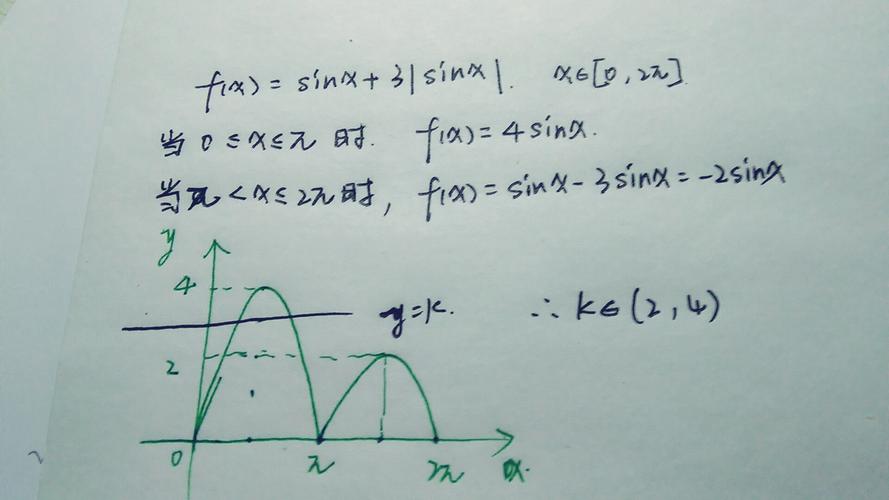 f(x) = sinx + 3|sinx|. x∈[0,2π]
当 0≤x≤π 时. f(x)=4sinx.
当π<x≤2π时, f(x)=sinx-3sinx=-2sinx
y
4
y=k. ∴ k∈(2,4)
2
0 π 2π x.